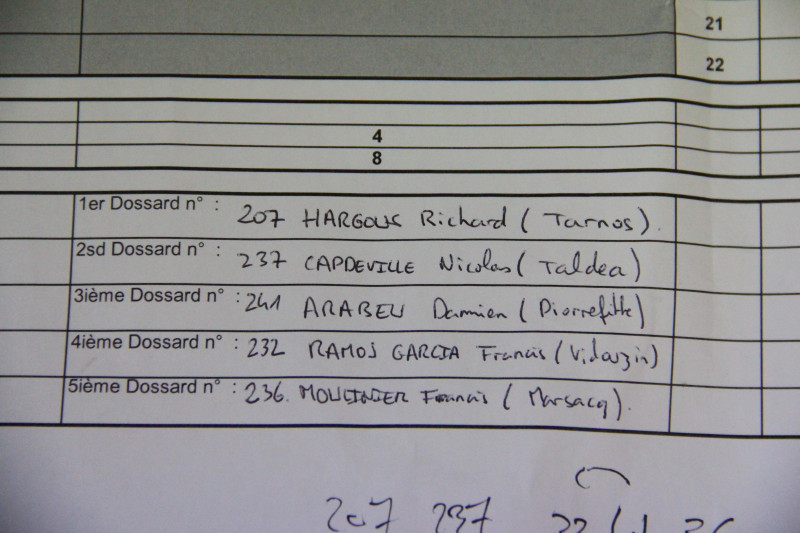 21
22
4
8
1er Dossard n° : 207 HARGOUS Richard ( Tarnos).
2sd Dossard n° : 237 CAPDEVILLE Nicolas ( Taldea)
3ième Dossard n° : 241 ARABEU Damien ( Pierrefitte)
4ième Dossard n° : 232 RAMOS GARCIA Francis ( Vidouzin)
5ième Dossard n° : 236. MOULINIER Francis ( Marsacq).
207 237